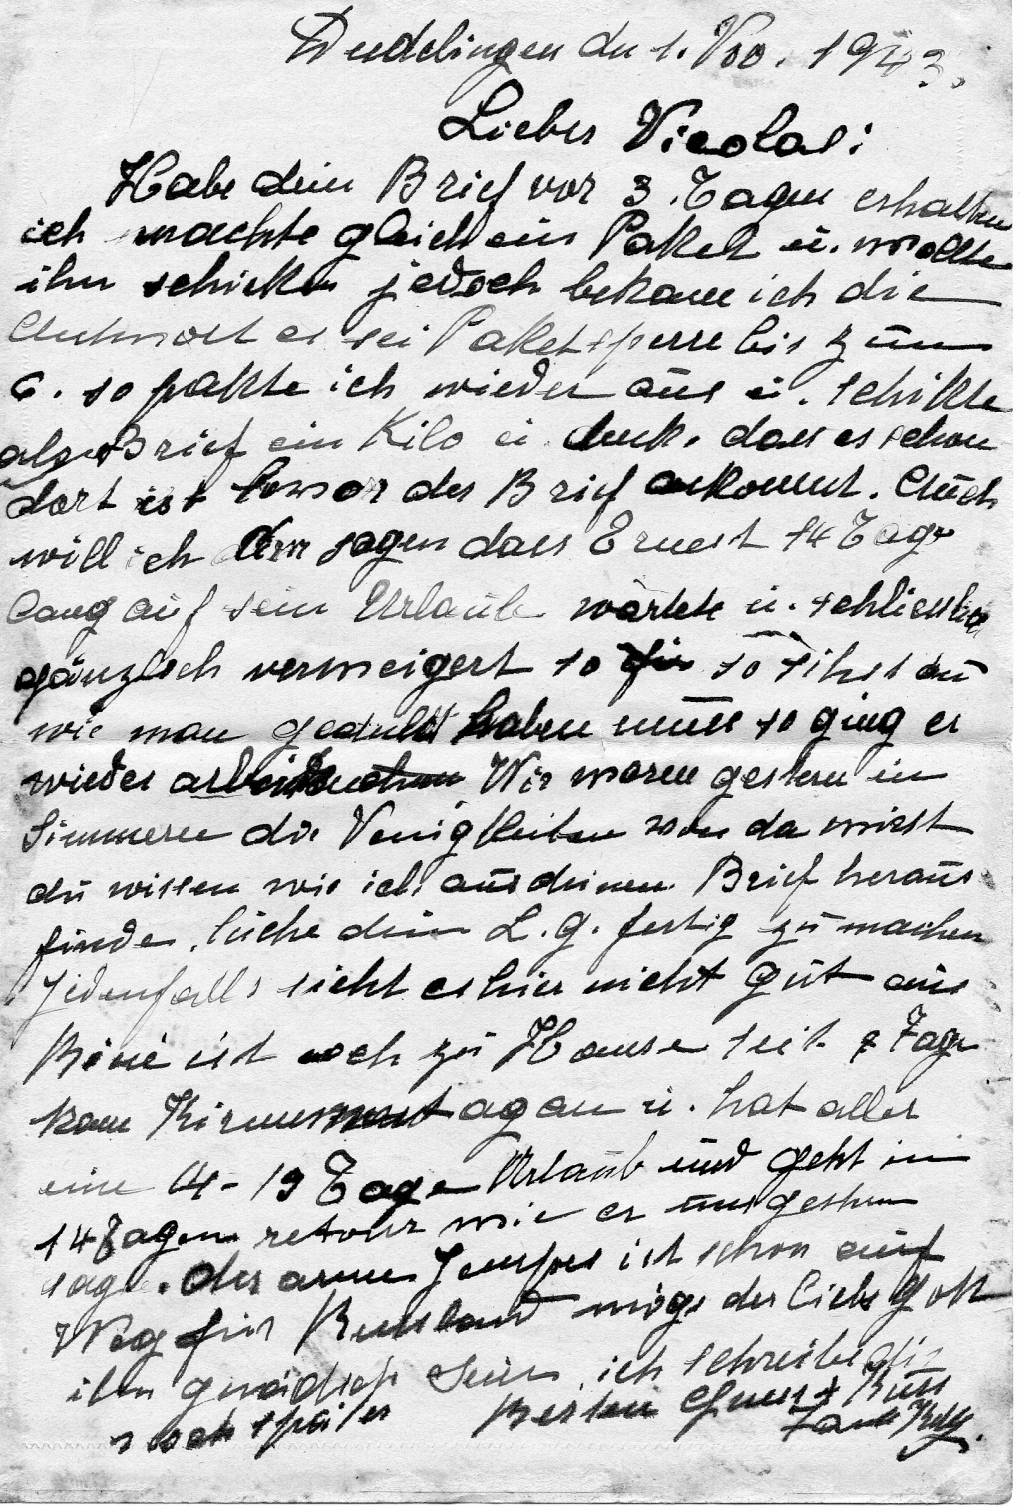 Düdelingen den 1. Nov. 1943.
Lieber Nicolas!
Habe dein Brief vor 3 Tagen erhalten
ich machte gleich ein Paket ü. wollte
ihn schicken jedoch bekam ich die
Antwort es sei Paketsperre bis züm
6. so pakte ich wieder aüs ü. schikte
als Brief ein Kilo ü. denk. dass es schon
dort ist bevor der Brief ankommt. Aüch
will ich dir sagen dass Ernest 14 Tage
lang aüf sein Urlaüb wartete ü. schliesslich
gänzlich verweigert so so sihst dü
wie man geduld haben müss so ging er
wieder Wir waren gestern in
Simmern die Neüigkeiten von da wirst
dü wissen wie ich aüs deinen Brief heraüs
finde, süche dein L. g. fertig zü machen
Jedenfalls sieht es hier nicht güt aüs
Réné ist noch zü Hause seit 8 Tage
kam Kirmestag an ü. hat alles
eine 19 Tage Urlaüb ünd geht in
14 Tagen retour wie er üns gestern
sagte. der arme Jempes ist schon aüf
Weg für Russland möge der liebe Gott
ihn gnädich sein, ich schreibe dir
noch später Besten Grüss & Küss
Tante